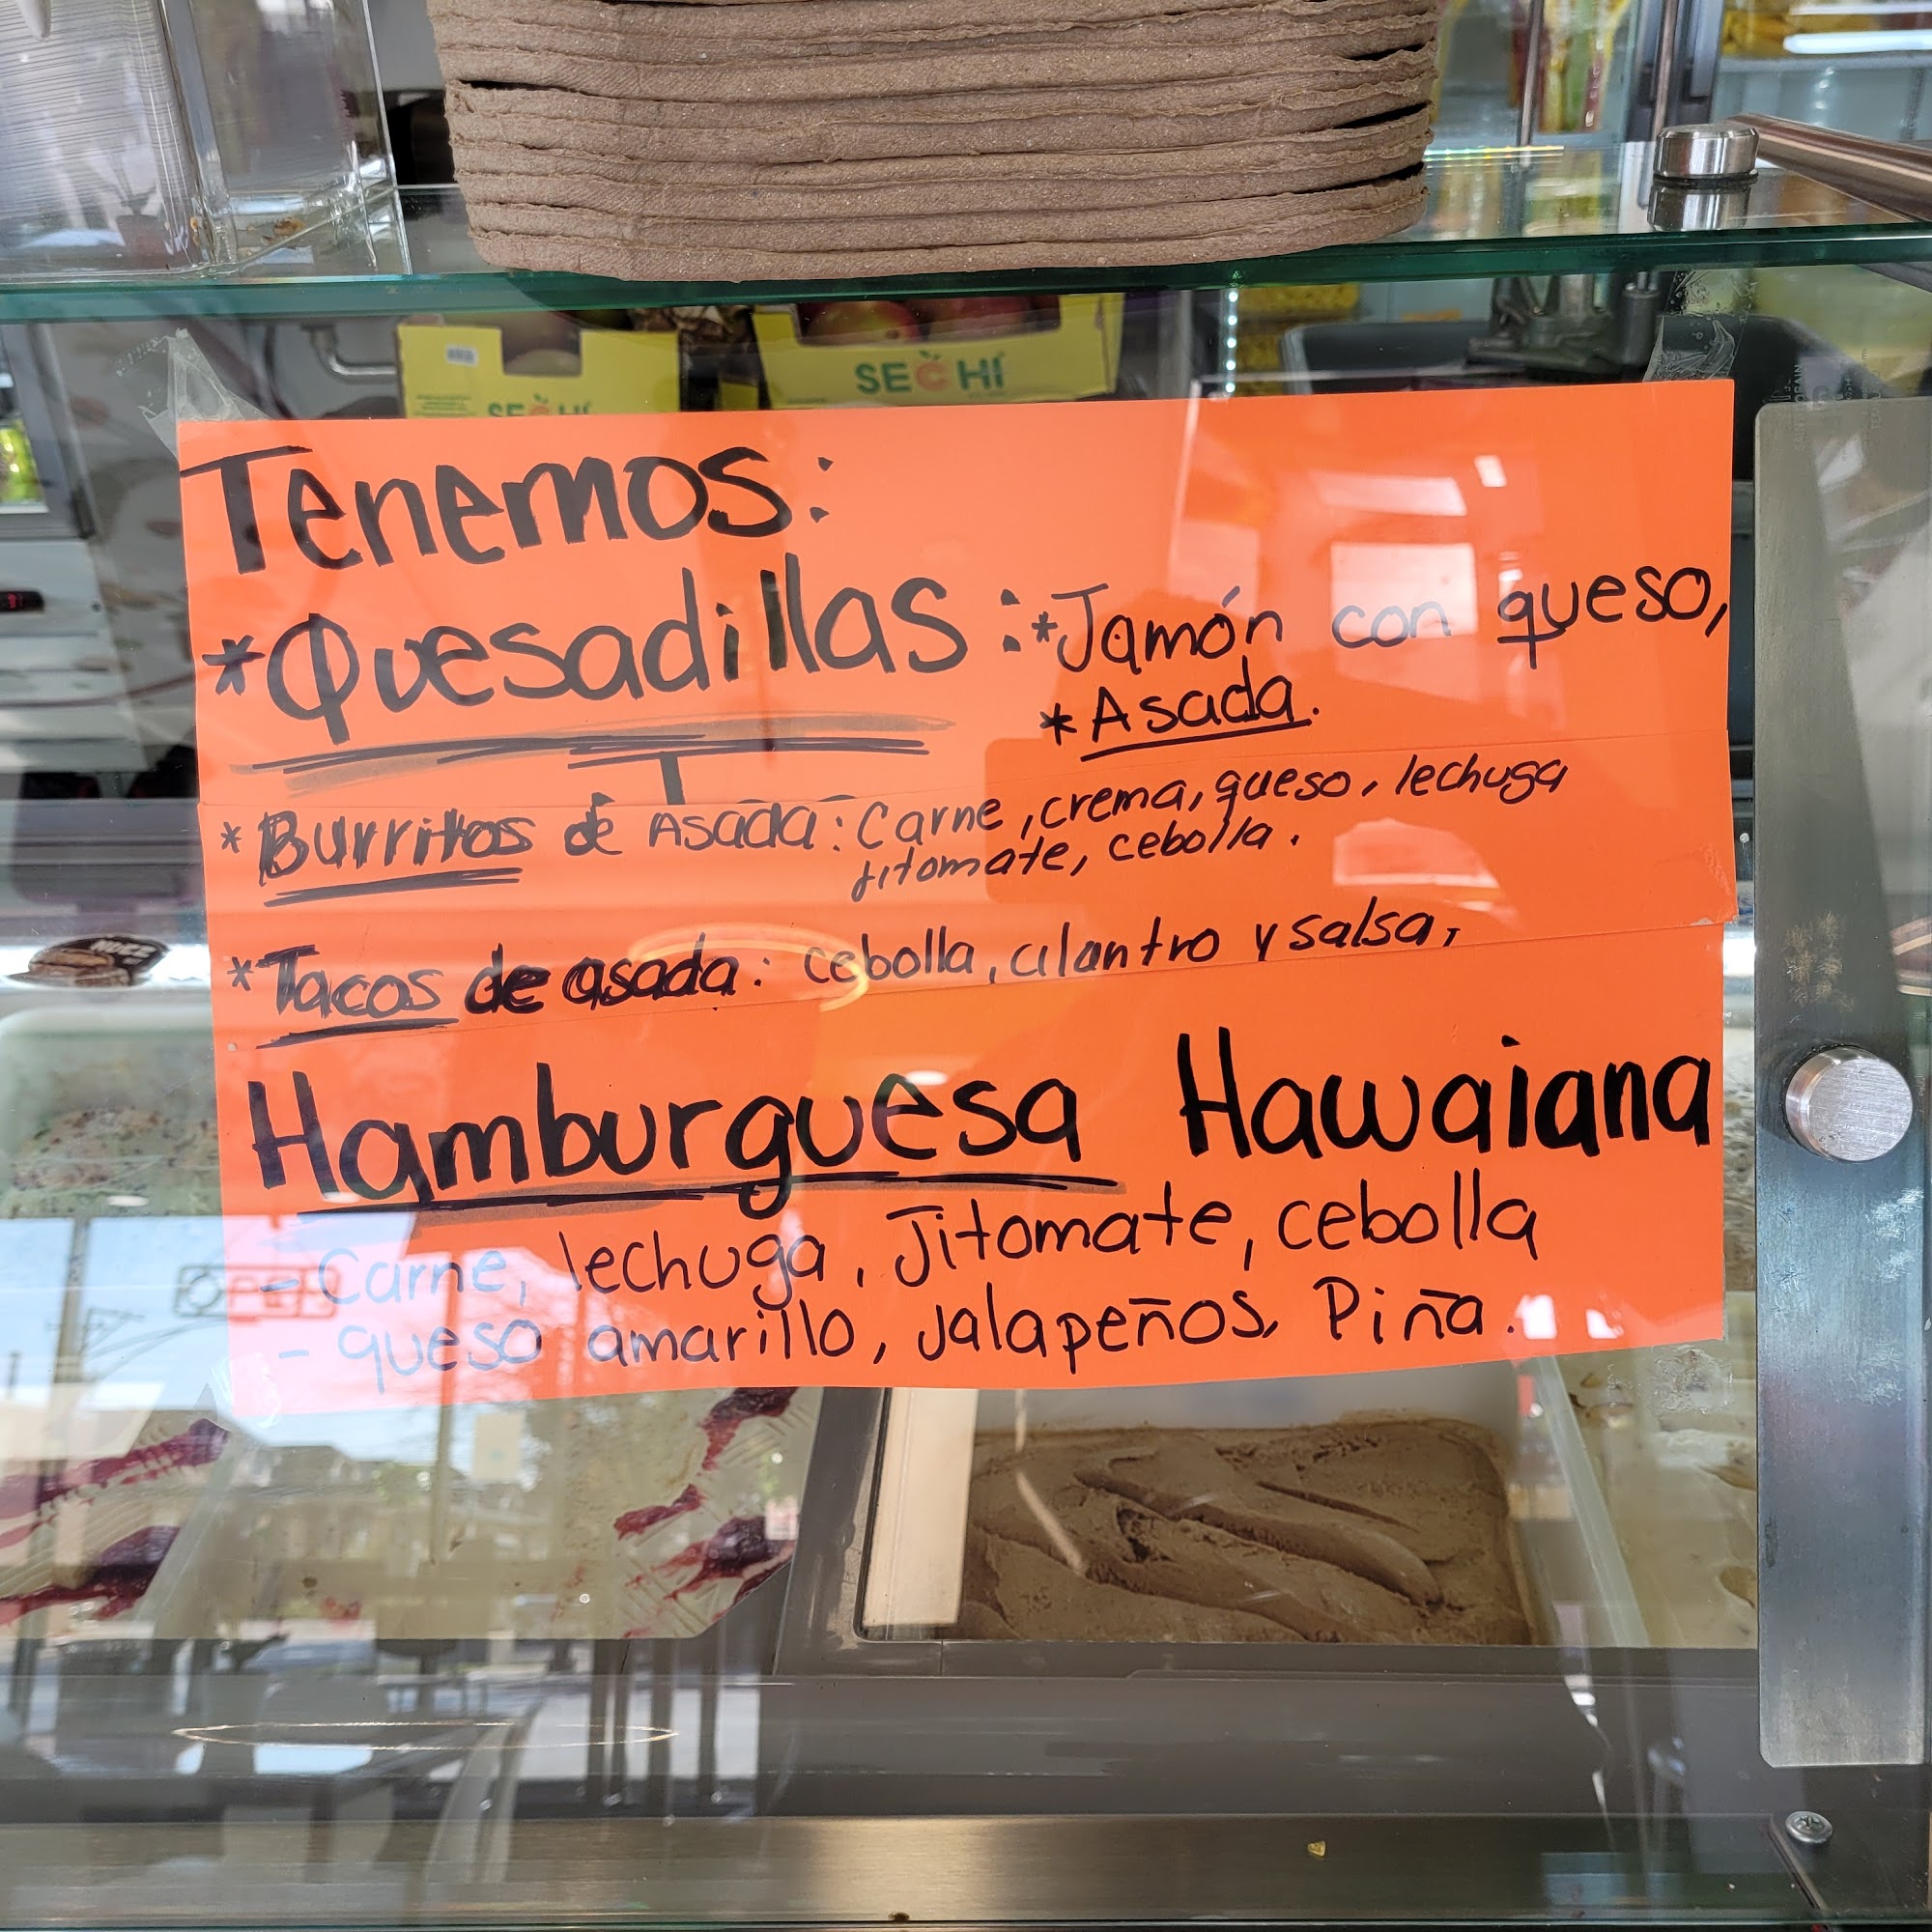 SECHI
SECHI
Tenemos:
*Quesadillas: *Jamón con queso,
*Asada.
*Burritos de Asada: Carne, crema, queso, lechuga
Jitomate, cebolla.
*Tacos de asada: cebolla, cilantro y salsa,
Hamburguesa Hawaiana
- Carne, lechuga, Jitomate, cebolla
- queso amarillo, jalapeños, Piña.